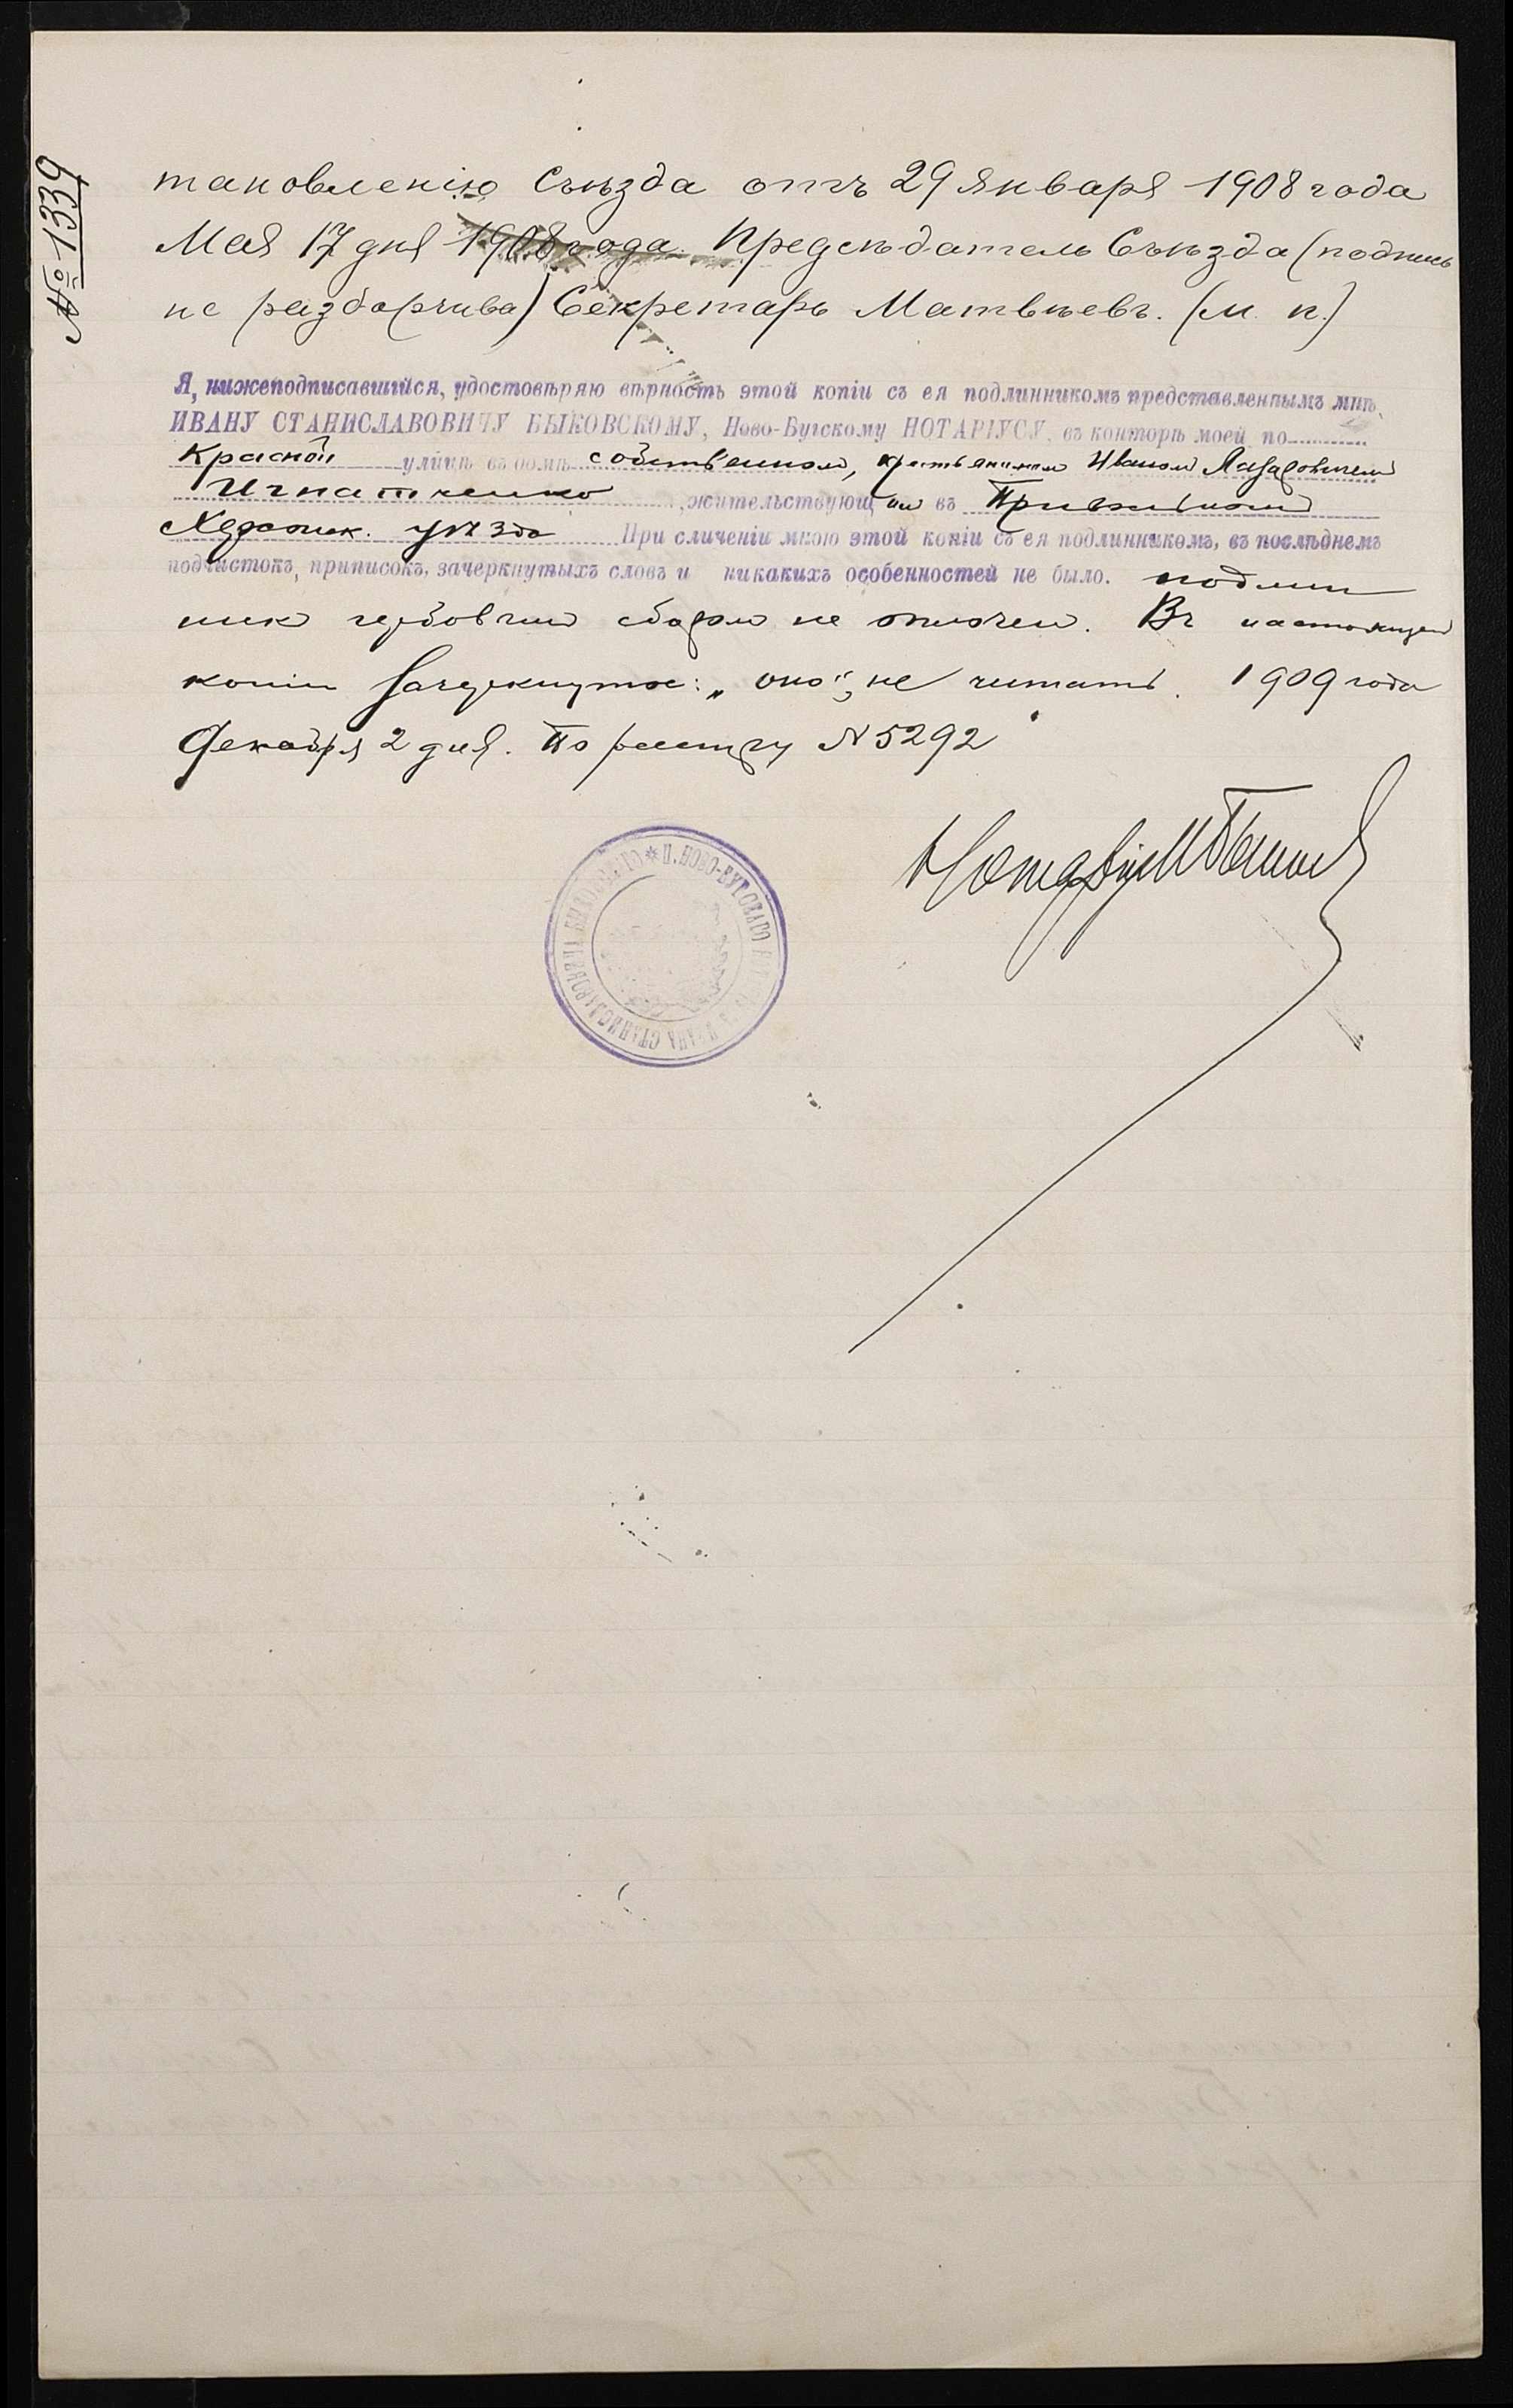 № 1339
тановленію Съѣзда отъ 29 Января 1908 года
Мая 17 дня 1908 года. Предсѣдатель Съѣзда (подпись
не разборчива) Секретарь Матвѣевъ. (М. п.)
Я, нижеподписавшійся, удостовѣряю вѣрность этой копіи съ ея подлинникомъ представленнымъ мнѣ,
ИВАНУ СТАНИСЛАВОВИЧУ БЫКОВСКОМУ, Ново-Бугскому НОТАРІУСУ, въ конторѣ моей по
Красной улицѣ въ домѣ собственном, крестьянином Иваном Лазаровичем
Игнатченко, жительствующ им въ
Херсонск. уѣзда При сличеніи мною этой копіи съ ея подлинникомъ, въ послѣднемъ
подчистокъ, приписокъ, зачеркнутыхъ словъ и никакихъ особенностей не было. Подлин
ник гербовым сбором не оплочен. Въ настоящей
копіи зачеркнутое: „оно", не читать. 1909 года
Декабря 2 дня. По реестру N 5292
Нотаріус
П. НОВО-БУГСКАГО ИВАНА СТАНИСЛАВОВИЧА БЫКОВСКАГО